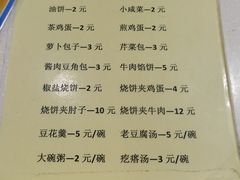 油饼—2 元 小咸菜—2 元
茶鸡蛋—2 元 煎鸡蛋—2 元
萝卜包子—3 元 芹菜包—3 元
酱肉豆角包—3 元 牛肉馅饼—5 元
椒盐烧饼—2 元 烧饼夹鸡蛋—4 元
烧饼夹肘子—10 元 烧饼夹牛肉—12 元
豆花羹—5 元/碗 老豆腐汤—5 元/碗
大碗粥—2 元/碗 疙瘩汤—3 元/碗